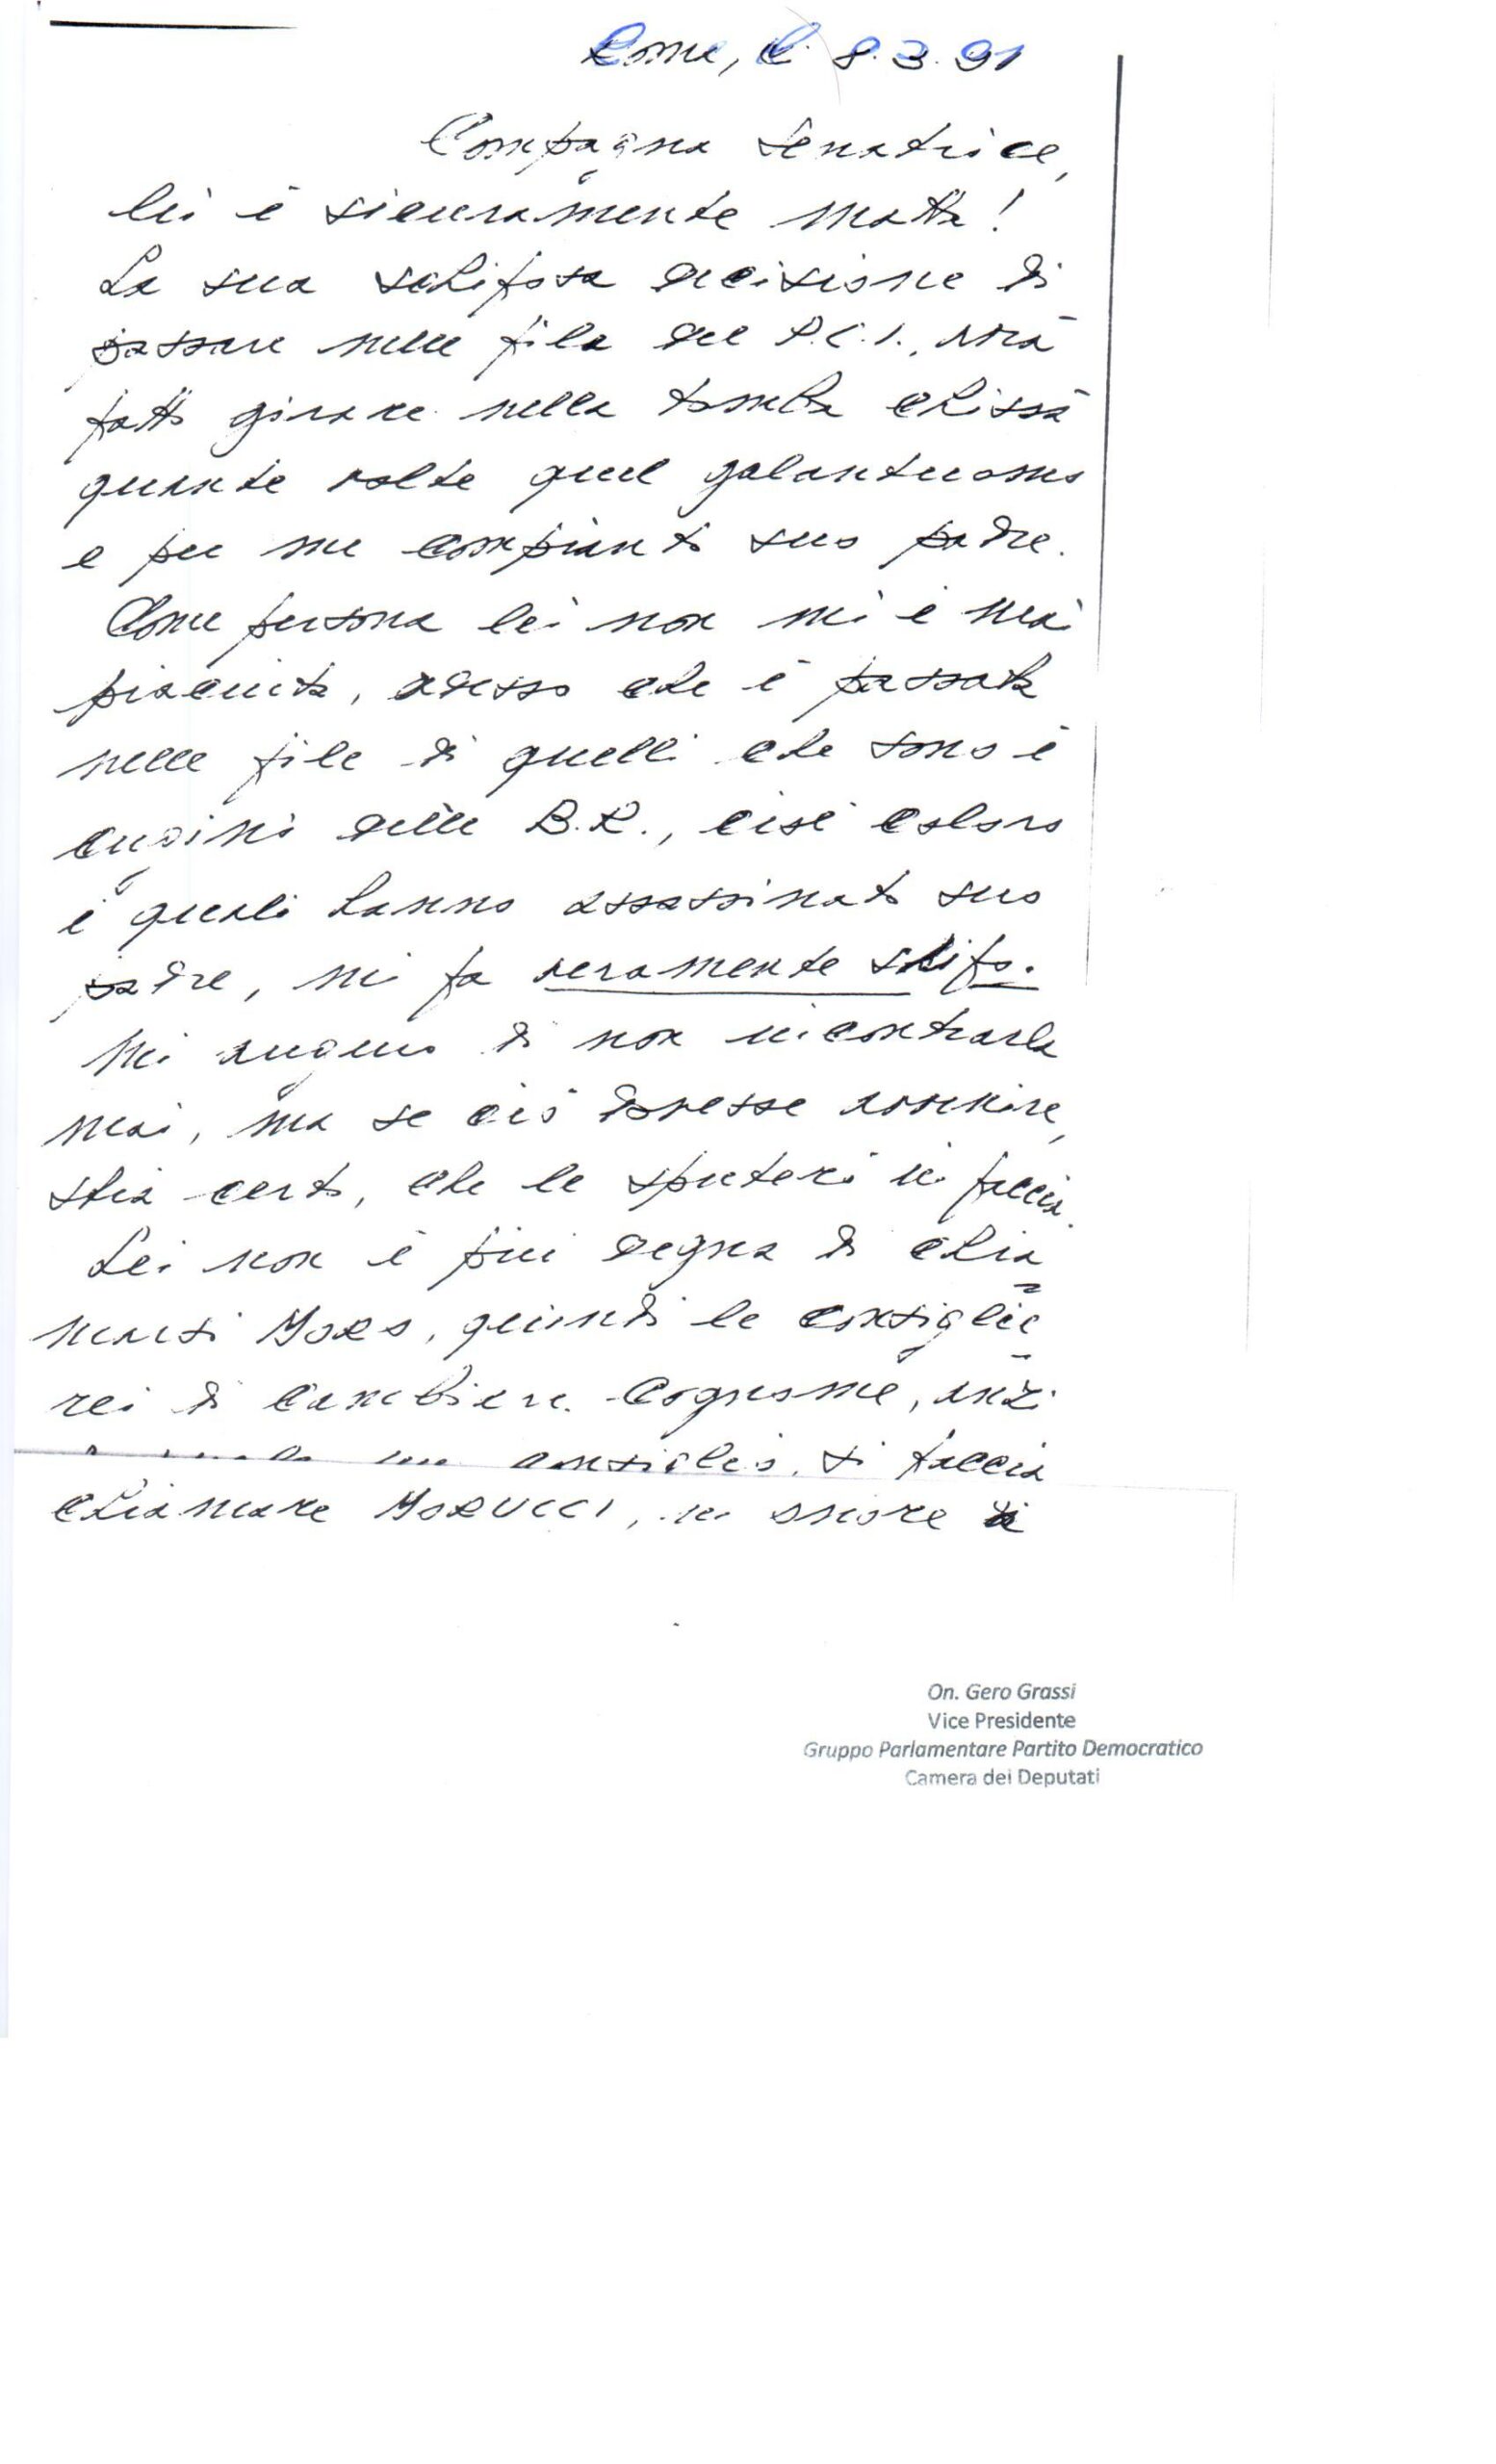 Roma, li 8.3.91
Compagna Senatrice,
lei è sicuramente matta!
La sua schifosa decisione di
passare nelle fila del P.C.I., avrà
fatto girare nella tomba chissà
quante volte quel galantuomo
e per me compianto suo padre.
Come persona lei non mi è mai
piaciuta, adesso che è passata
nelle file di quelli che sono i
cugini delle B.R., cioè coloro
i quali hanno assassinato suo
padre, mi fa veramente schifo.
Mi auguro di non incontrarla
mai, ma se ciò dovesse avvenire,
stia certo, che le sputerò in faccia.
Lei non è più degna di chia
marsi MORO, quindi le consiglie
rei di cambiare cognome, anzi
un consiglio, si faccia
chiamare MORUCCI, in onore di
On. Gero Grassi
Vice Presidente
Gruppo Parlamentare Partito Democratico
Camera dei Deputati